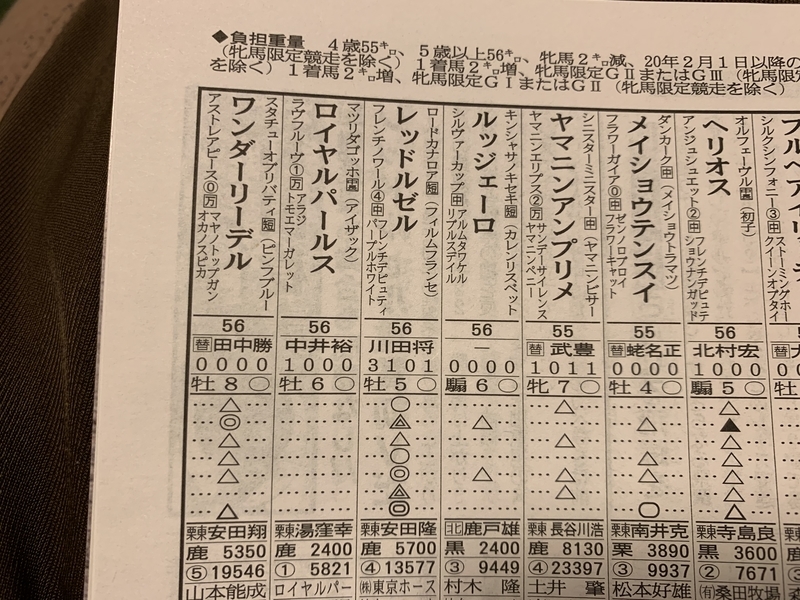 ◆負担重量 4歳55㌔、5歳以上56㌔、牝馬2㌔減、20年2月1日以降の
(牝馬限定競走を除く)1着馬2㌔増、牝馬限定GⅡまたはGⅢ(牝馬限定
を除く)1着馬2㌔増、牝馬限定GⅠまたはGⅡ(牝馬限定競走を除く)
シルクシンフォニー③中
ストーミングホー
クイーンオブタイ
オルフェーヴル (初子)
ヘリオス
アンジュシュエット②中
フレンチデピュテ
ショウナンガッド
56
北村宏
1000
騸5○
栗東寺島良
黒3600
②7671
(有)桑田牧場
ダンカーク中(メイショウトラマツ)
メイショウテンスイ
フラワーガイア⓪中
ゼンノロブロイ
フラワーキャット
55
替蛯名正
0000
牡4○
栗東南井克
栗3890
③9937
松本好雄
シニスターミニスター中(ヤマニンビサー
ヤマニンアンプリメ
ヤマニンエリプス②万
サンデーサイレンス
ヤマニンペニー
55
替武豊
1011
牝7○
栗東長谷川浩
鹿8130
④23397
土井肇
キンシャサノキセキ短(カレンリスペット
ルッジェーロ
シルヴァーカップ中
アルムタワケル
リプルスデイル
56
―
0000
騸6○
北鹿戸雄
黒2400
③9449
村木隆
ロードカナロア短(フィルムフランセ)
レッドルゼル
フレンチノワール④中
フレンチデピュティ
パープルホワイト
56
川田将
3101
牡5○
栗東安田隆
鹿5700
④13577
㈱東京ホース
マツリダゴッホ(アイザック)
ロイヤルパールス
ラヴフルーヴ①万
アラジ
トモエマーガレット
56
中井裕
1000
牡6○
栗東湯窪幸
鹿2400
①5821
ロイヤルパー
スタチューオブリバティ短(ピンフブルー
ワンダーリーデル
アストレアピース⓪万
マヤノトップガン
オカノスピカ
56
替田中勝
0000
牡8○
栗東安田翔
鹿5350
⑤19546
山本能成